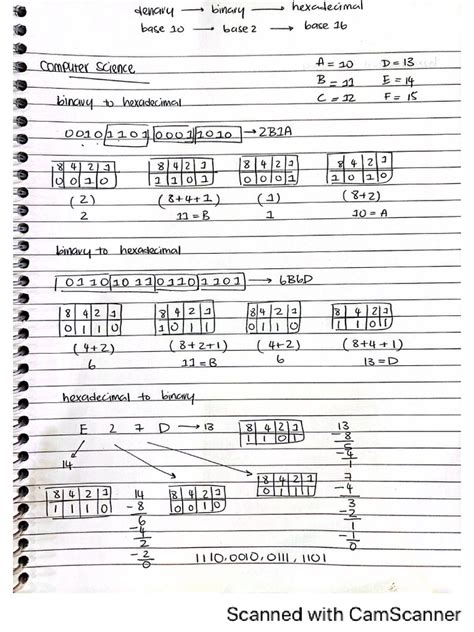 denary → binary → hexadecimal
base 10 → base 2 → base 16
Computer Science
A = 10 D = 13
B = 11 E = 14
C = 12 F = 15
binary to hexadecimal
0010 1101 0001 1010 → 2B1A
8 4 2 1 8 4 2 1 8 4 2 1 8 4 2 1
0 0 1 0 1 1 0 1 0 0 0 1 1 0 1 0
(2) (8+4+1) (1) (8+2)
2 11 = B 1 10 = A
binary to hexadecimal
0110 1011 0110 1101 → 6B6D
8 4 2 1 8 4 2 1 8 4 2 1 8 4 2 1
0 1 1 0 1 0 1 1 0 1 1 0 1 1 0 1
(4+2) (8+2+1) (4+2) (8+4+1)
6 11 = B 6 13 = D
hexadecimal to binary
E 2 7 D → 13
8 4 2 1
1 1 0 1
13
-8
5
-4
1
14
8 4 2 1
0 1 1 1
7
-4
3
-2
1
-1
0
8 4 2 1
1 1 1 0
14
-8
6
-4
2
-2
0
8 4 2 1
0 0 1 0
1110, 0010, 0111, 1101
Scanned with CamScanner